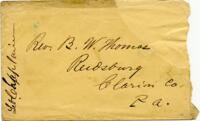 Rev. B. W. Thomas
Reidsburg
Clarion Co.
P.a.